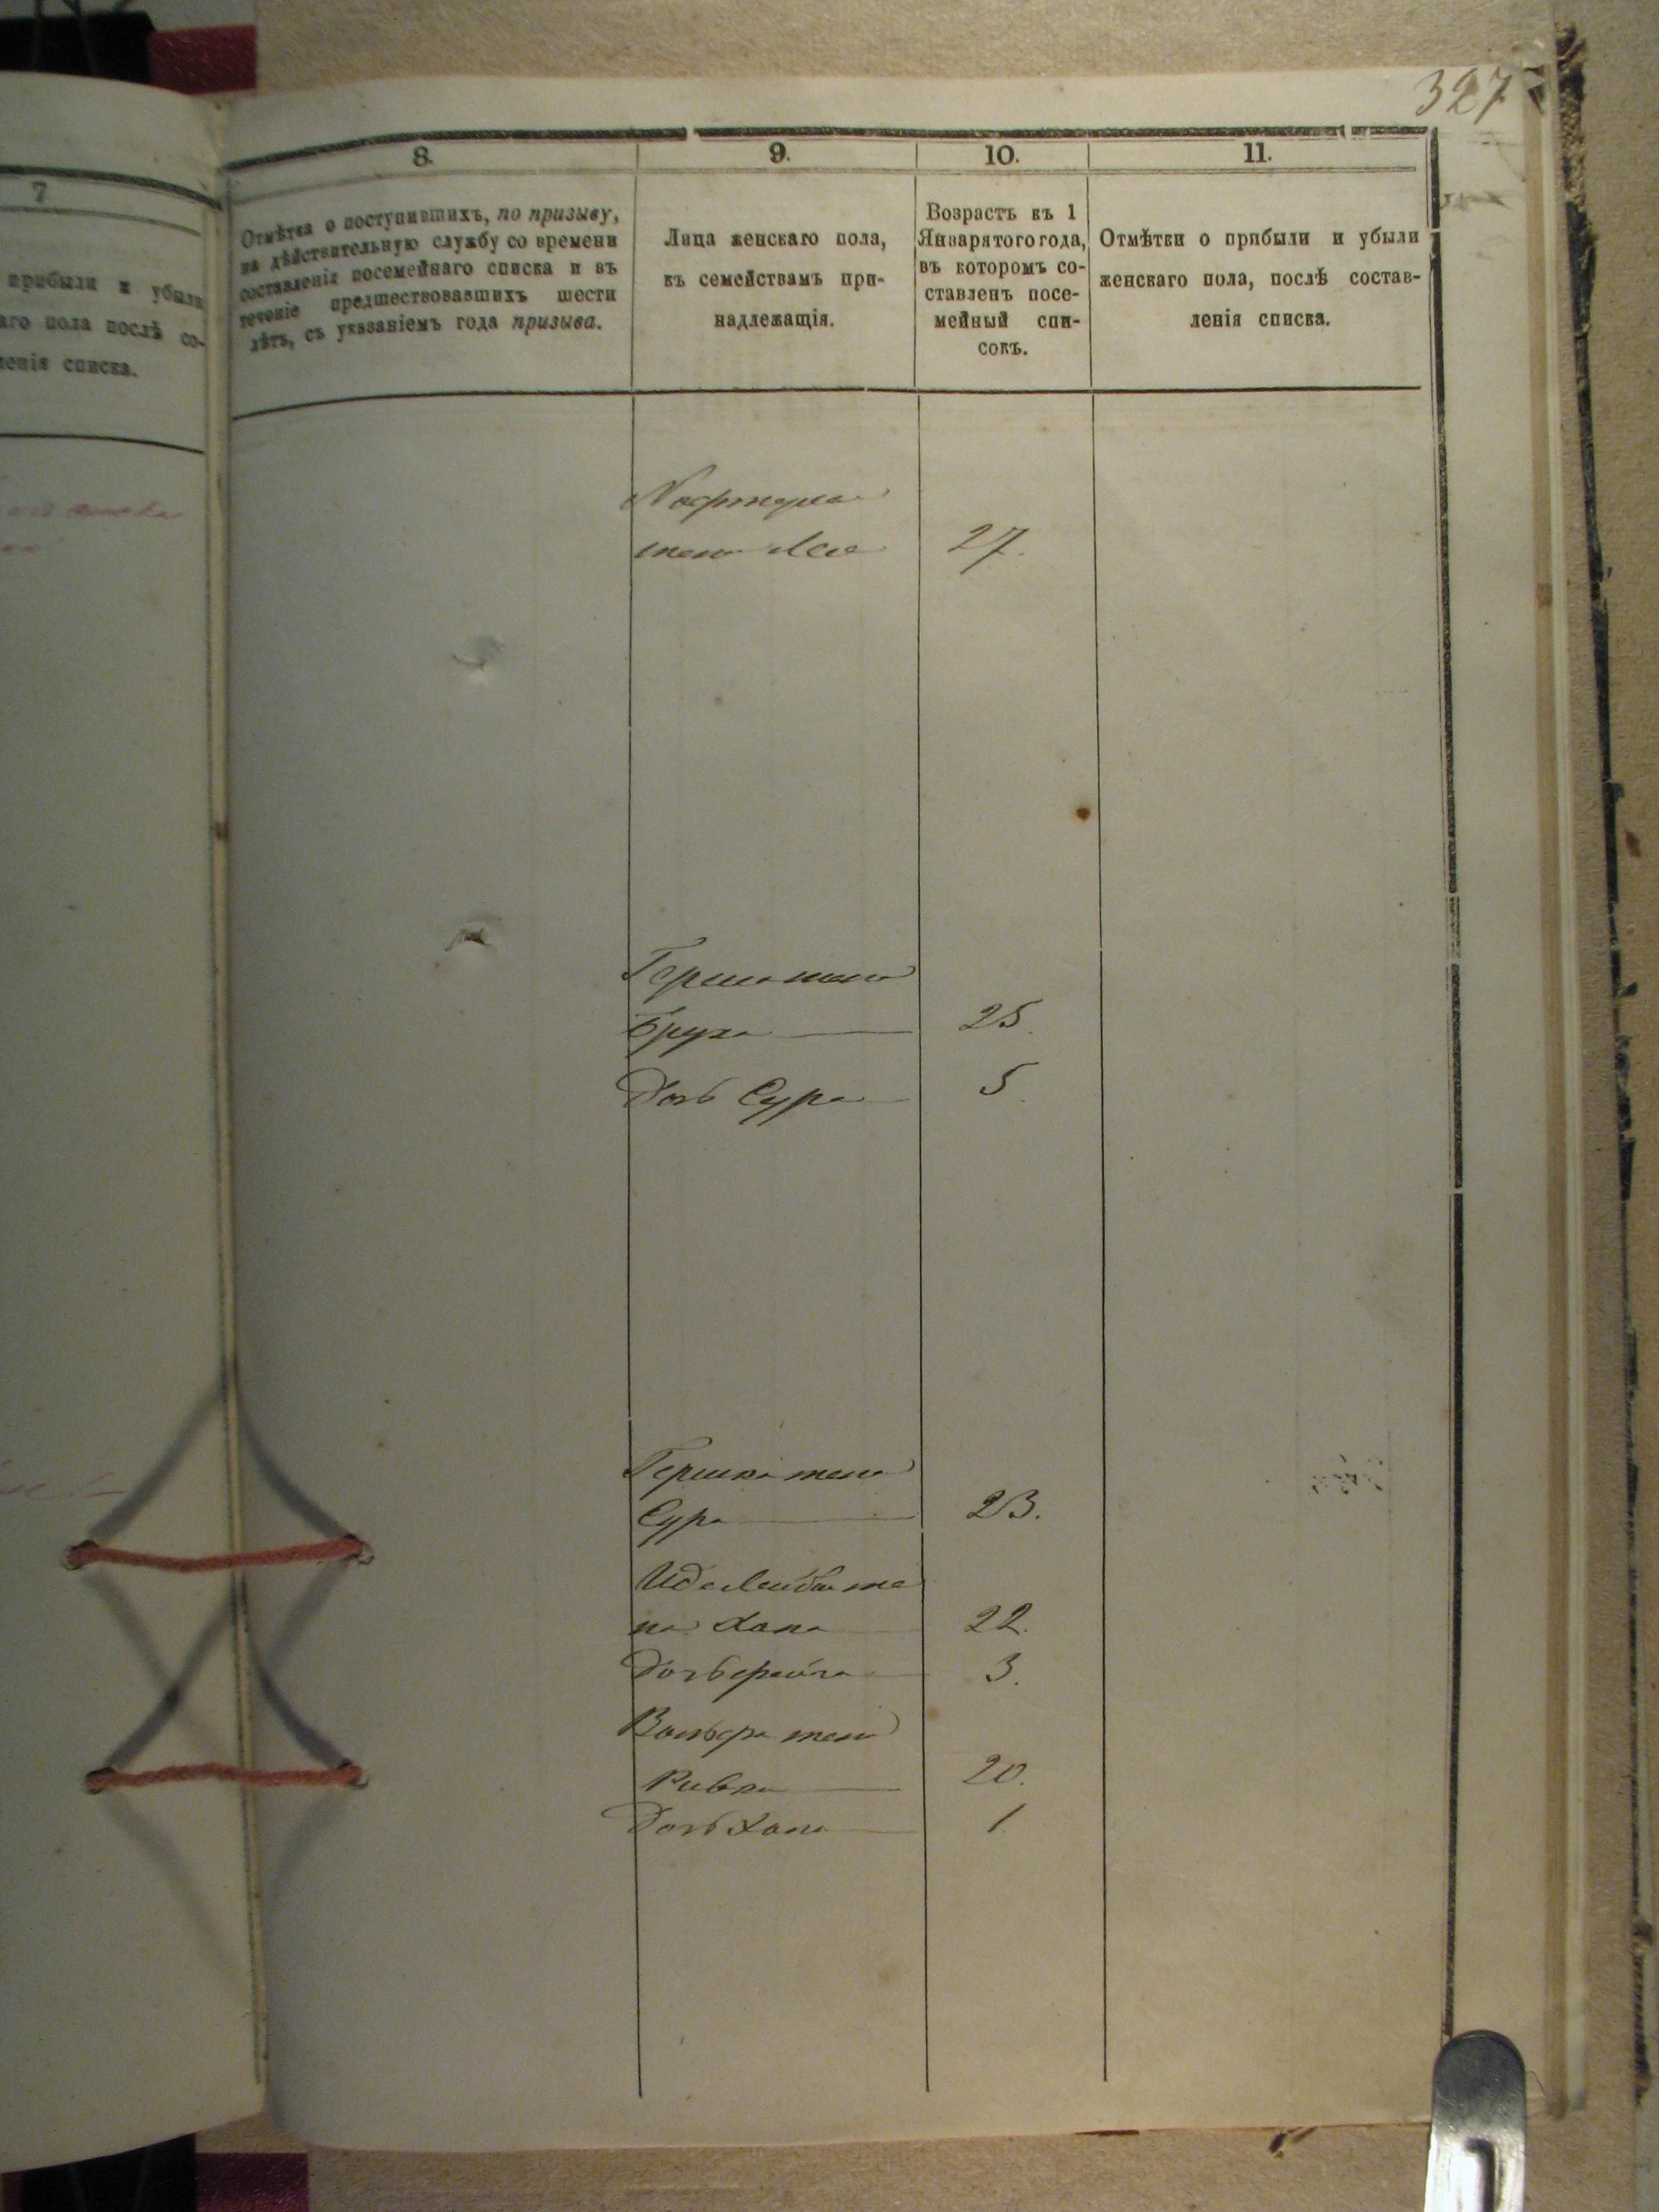 327
7
прибыли и убыли
аго пола послѣ со-
ленія списка.
8.
Отмѣтка о поступившихъ, по призыву,
на дѣйствительную службу со времени
составленія посемейнаго списка и въ
теченіе предшествовавшихъ шести
лѣтъ, съ указаніемъ года призыва.
9.
Лица женскаго пола,
къ семействамъ при-
надлежащія.
10.
Возрастъ къ 1
Января того года,
въ которомъ со-
ставленъ посе-
мейный спи-
сокъ.
11.
Отмѣтки о прибыли и убыли
женскаго пола, послѣ состав-
ленія списка.
Нафтула
жена Леа 27.
Герша жена
Бруха 25.
Дочь Сура 5.
Гершка жена
Сура 23.
Иделейба же
на Хана 22.
Дочь Фрейга 3.
жена
Ривка 20.
Дочь Хана 1